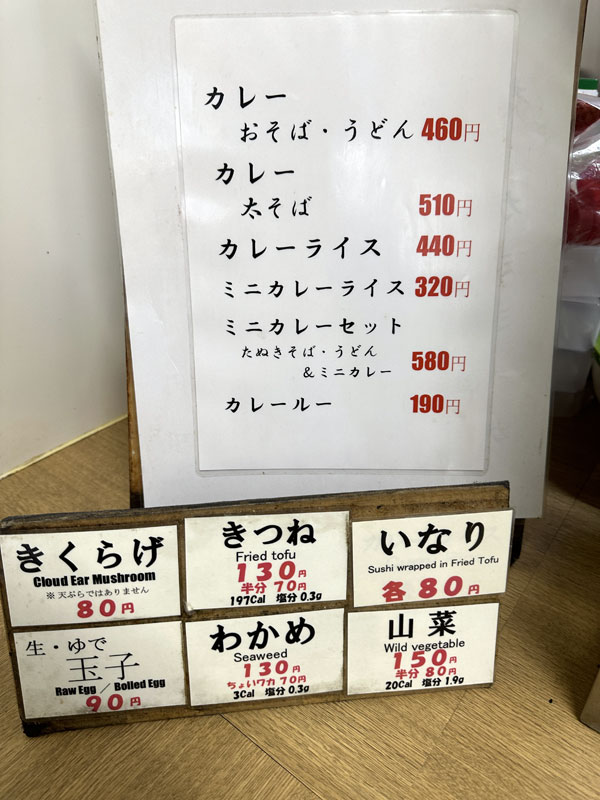 カレー
おそば・うどん 460円
カレー
太そば 510円
カレーライス 440円
ミニカレーライス 320円
ミニカレーセット
たぬきそば・うどん
&ミニカレー 580円
カレールー 190円
きくらげ
Cloud Ear Mushroom
※天ぷらではありません
80円
きつね
Fried tofu
130円
半分70円
197Cal 塩分0.3g
いなり
Sushi wrapped in Fried Tofu
各80円
生・ゆで
玉子
Raw Egg / Boiled Egg
90円
わかめ
Seaweed
130円
ちょいワカ70円
3Cal 塩分0.3g
山菜
Wild vegetable
150円
半分80円
20Cal 塩分1.9g